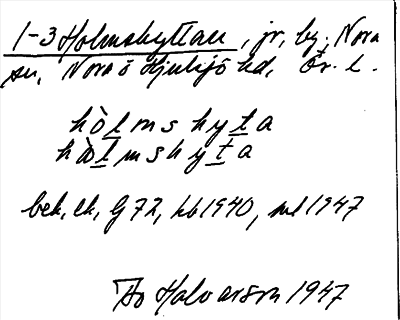 1-3 Holmshyttan, jr, by, Nora
sn, Nora o Hjulsjö hd, Ör. l.
hòlmshyta
hàlmshyta
bek, ek, G 72, hb 1940, ml 1947
To Halvarson 1947